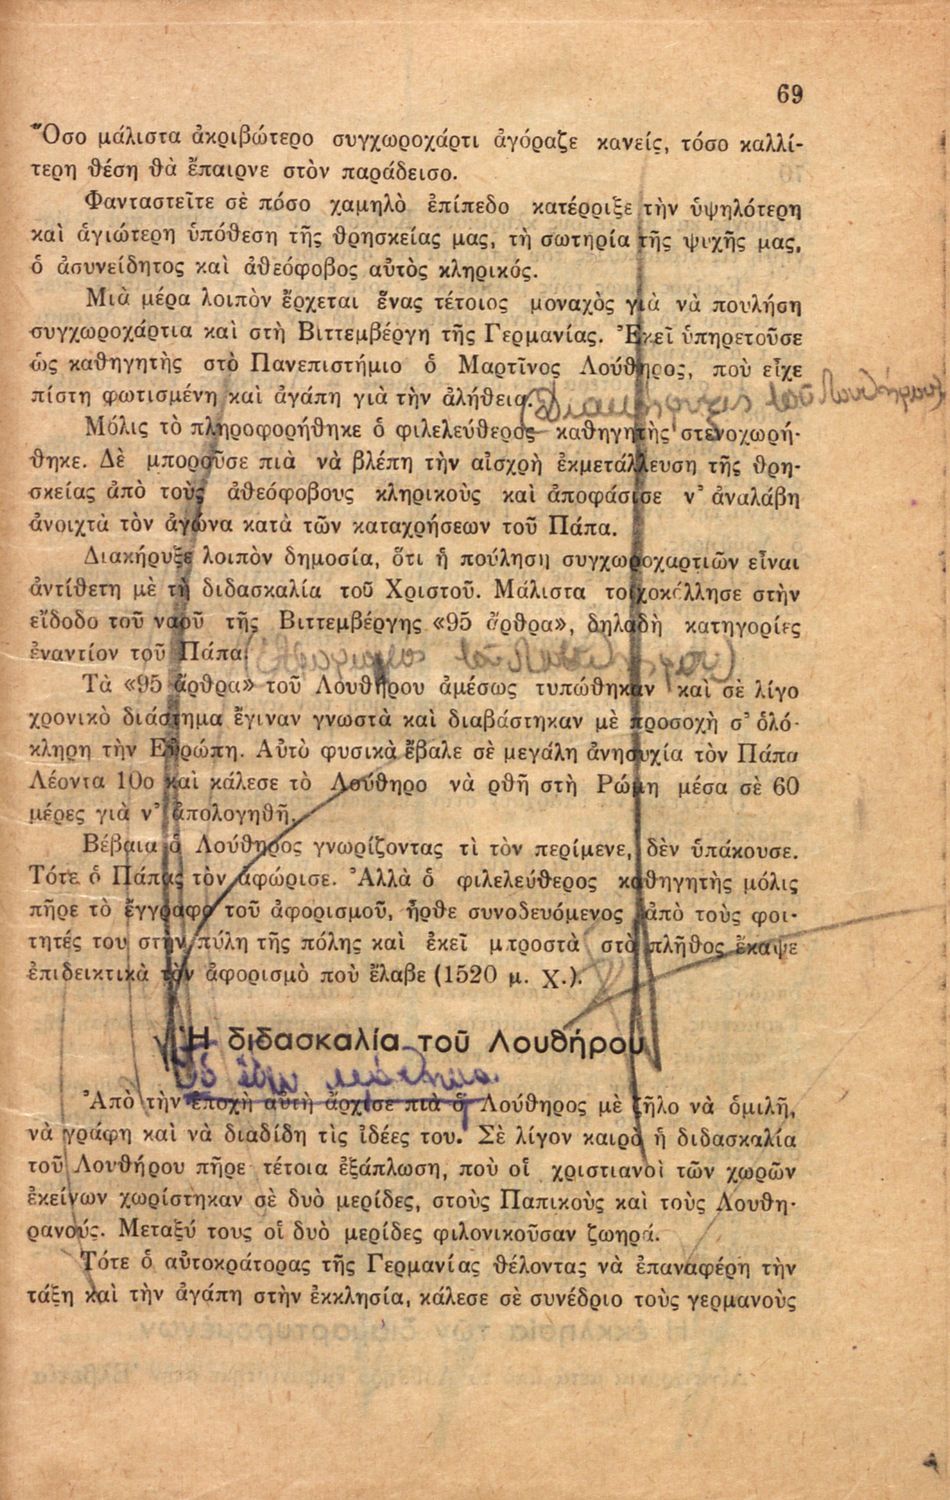 69
Ὅσο μάλιστα ἀκριβώτερο συγχωροχάρτι ἀγόραζε κανείς, τόσο καλλί-
τερη θέση θὰ ἔπαιρνε στὸν παράδεισο.
Φανταστεῖτε σὲ πόσο χαμηλὸ ἐπίπεδο κατέρριξε τὴν ὑψηλότερη
καὶ ἁγιώτερη ὑπόθεση τῆς θρησκείας μας, τὴ σωτηρία τῆς ψυχῆς μας,
ὁ ἀσυνείδητος καὶ ἀθεόφοβος αὐτὸς κληρικός.
Μιὰ μέρα λοιπὸν ἔρχεται ἕνας τέτοιος μοναχὸς γιὰ νὰ πουλήση
συγχωροχάρτια καὶ στὴ Βιττεμβέργη τῆς Γερμανίας. Ἐκεῖ ὑπηρετοῦσε
ὡς καθηγητὴς στὸ Πανεπιστήμιο ὁ Μαρτῖνος Λούθηρος, ποὺ εἶχε
πίστη φωτισμένη καὶ ἀγάπη γιὰ τὴν ἀλήθεια. Διαμαρτυρίες τοῦ Λουθήρου
Μόλις τὸ πληροφορήθηκε ὁ φιλελεύθερος καθηγητὴς στενοχωρή-
θηκε. Δὲ μποροῦσε πιὰ νὰ βλέπη τὴν αἰσχρὴ ἐκμετάλλευση τῆς θρη-
σκείας ἀπὸ τοὺς ἀθεόφοβους κληρικοὺς καὶ ἀποφάσισε ν' ἀναλάβη
ἀνοιχτὰ τὸν ἀγώνα κατὰ τῶν καταχρήσεων τοῦ Πάπα.
Διακήρυξε λοιπὸν δημοσία, ὅτι ἡ πούληση συγχωροχαρτιῶν εἶναι
ἀντίθετη μὲ τὴ διδασκαλία τοῦ Χριστοῦ. Μάλιστα τοιχοκόλλησε στὴν
εἴδοδο τοῦ ναοῦ τῆς Βιττεμβέργης «95 ἄρθρα», δηλαδὴ κατηγορίες
ἐναντίον τοῦ Πάπα.
Τὰ «95 ἄρθρα» τοῦ Λουθήρου ἀμέσως τυπώθηκαν καὶ σὲ λίγο
χρονικὸ διάστημα ἔγιναν γνωστὰ καὶ διαβάστηκαν μὲ προσοχὴ σ' ὁλό-
κληρη τὴν Εὐρώπη. Αὐτὸ φυσικὰ ἔβαλε σὲ μεγάλη ἀνησυχία τὸν Πάπα
Λέοντα 10ο καὶ κάλεσε τὸ Λούθηρο νὰ ρθῆ στὴ Ρώμη μέσα σὲ 60
μέρες γιὰ ν' ἀπολογηθῆ.
Βέβαια ὁ Λούθηρος γνωρίζοντας τὶ τὸν περίμενε, δὲν ὑπάκουσε.
Τότε ὁ Πάπας τὸν ἀφώρισε. Ἀλλὰ ὁ φιλελεύθερος καθηγητὴς μόλις
πῆρε τὸ ἔγγραφο τοῦ ἀφορισμοῦ, ἦρθε συνοδευόμενος ἀπὸ τοὺς φοι-
τητές του στὴν πύλη τῆς πόλης καὶ ἐκεῖ μπροστὰ στὸ πλῆθος ἔκαψε
ἐπιδεικτικὰ τὸν ἀφορισμὸ ποὺ ἔλαβε (1520 μ. Χ.).
Ἡ διδασκαλία τοῦ Λουθήρου
Ἀπὸ τὴν ἐποχὴ αὐτὴ ἄρχισε πιὰ ὁ Λούθηρος μὲ ζῆλο νὰ ὁμιλῆ,
νὰ γράφη καὶ νὰ διαδίδη τὶς ἰδέες του. Σὲ λίγον καιρὸ ἡ διδασκαλία
τοῦ Λουθήρου πῆρε τέτοια ἐξάπλωση, ποὺ οἱ χριστιανοὶ τῶν χωρῶν
ἐκείνων χωρίστηκαν σὲ δυὸ μερίδες, στοὺς Παπικοὺς καὶ τοὺς Λουθη-
ρανούς. Μεταξύ τους οἱ δυὸ μερίδες φιλονικοῦσαν ζωηρά.
Τότε ὁ αὐτοκράτορας τῆς Γερμανίας θέλοντας νὰ ἐπαναφέρη τὴν
τάξη καὶ τὴν ἀγάπη στὴν ἐκκλησία, κάλεσε σὲ συνέδριο τοὺς γερμανοὺς